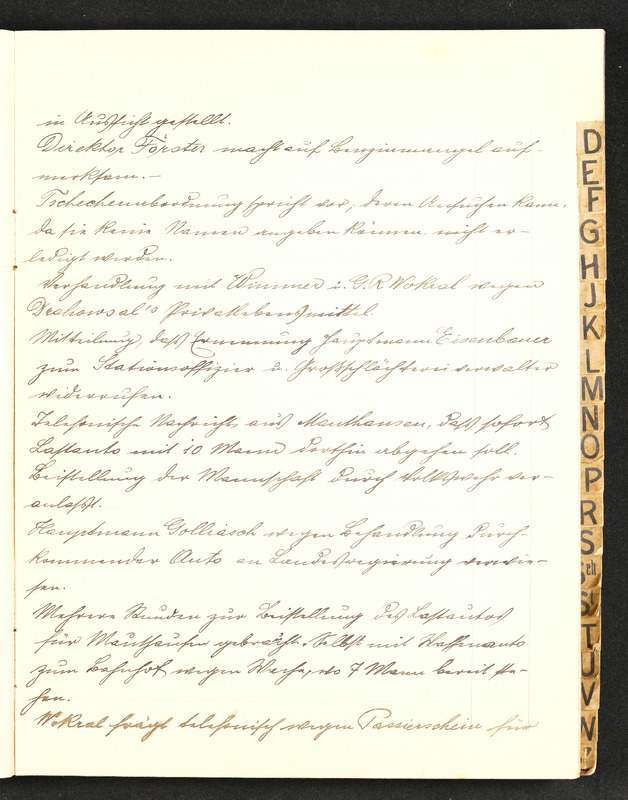 in Aussicht gestellt.
Direktor Förster macht auf Benzinmangel auf-
merksam.–
Tschechenabordnung spricht vor, deren Ansuchen kann,
da sie keine Namen angeben können, nicht er-
ledigt werden.
Verhandlung mit Wimmer u. G.R. Wokral wegen
Drchowsal's Privatlebensmittel.
Mitteilung, dass Ernennung Hauptmann Eisenbauer
zum Stationsoffizier u. Grossschlächtereiverwalter
widerrufen.
Telefonische Nachricht aus Mauthausen, dass sofort
Lastauto mit 10 Mann dorthin abgehen soll.
Beistellung der Mannschaft durch Volkswehr ver-
anlasst.
Hauptmann Golliasch wegen Behandlung durch-
kommender Auto an Landesregierung verwie-
sen.
Mehrere Stunden zur Beistellung des Lastautos
für Mauthausen gebracht. Selbst mit Waffenauto
zum Bahnhof wegen Wache, wo 7 Mann bereit ste-
hen.
Wokral frägt telefonisch wegen Passierschein für
D
E
F
G
H
J
K
L
M
N
O
P
R
S
Sch
St
T
U
V
W